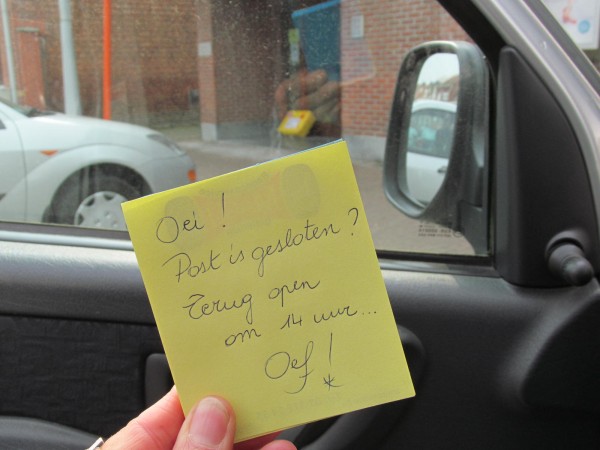 Oei !
Post is gesloten ?
Terug open
om 14 uur...
Oef !
*